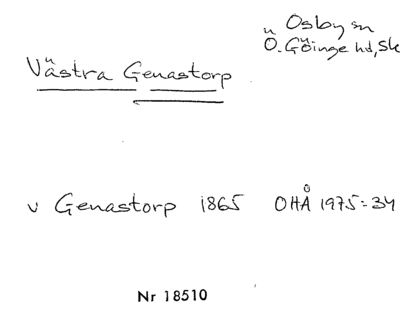 Osby sn
Ö. Göinge hd, Sk
Västra Genastorp
v Genastorp 1865 OHÅ 1975:34
Nr 18510